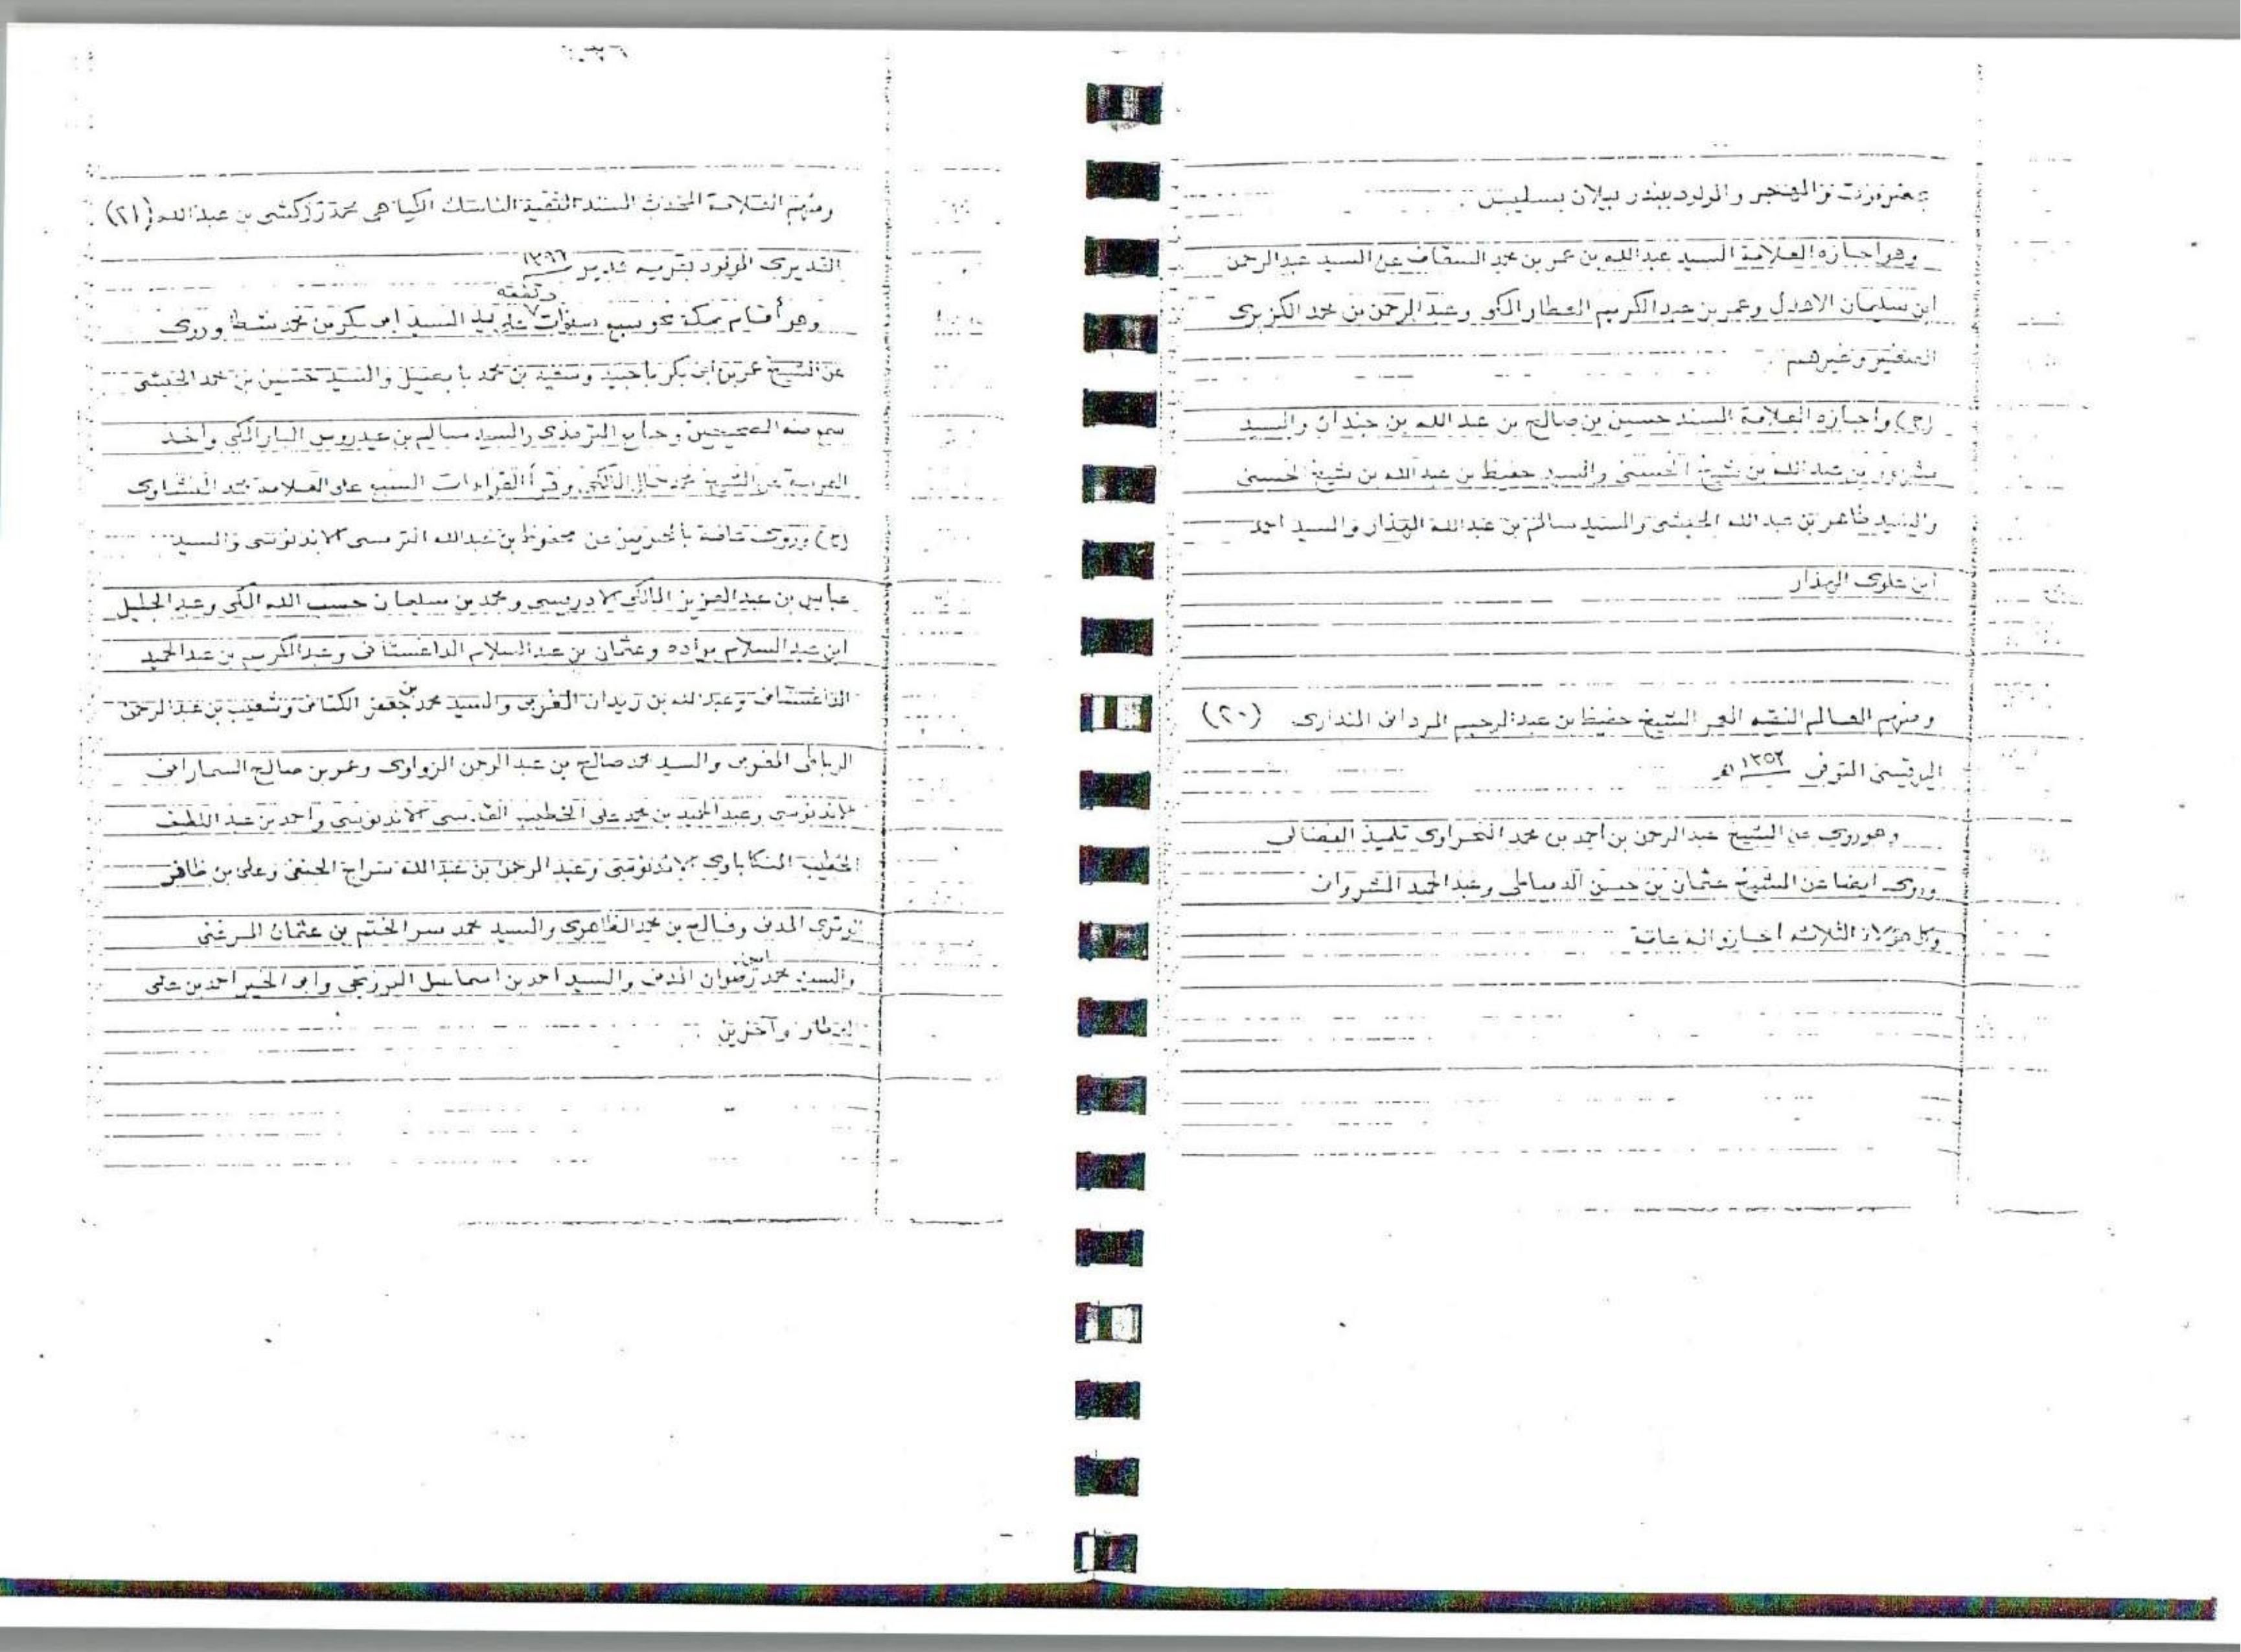 والمولود ببندر بيلان بسليس .
وهو اجازه العلامة السيد عبدالله بن عمر بن محمد السقاف عن السيد عبدالرحمن
ابن سليمان الاهدل وعمر بن عبدالكريم العطار المكي وعبدالرحمن بن محمد الكزبري
الصغير وغيرهم .
(ح) واجازه العلامة السند حسين بن صالح بن عبدالله بن جندان والسيد
بن عبدالله بن شيخ الحسيني والسيد حفيظ بن عبدالله بن شيخ الحسيني
والسيد طاهر بن عبدالله الحبشي والسيد سالم بن عبدالله الهدار والسيد احمد
ابن علوى الهدار
ومنهم العالم الفقيه المعمر الشيخ حفيظ بن عبدالرحيم المردانى (٢٠)
المتوفى ١٣٥٢هـ
وهو روى عن الشيخ عبدالرحمن بن احمد بن محمد النحراوى تلميذ الفضالى
وروى ايضا عن الشيخ عثمان بن حسن الدمياطى وعبدالحميد الشروانى
وكل هؤلاء الثلاثة اجازوا له عامة
ومنهم العلامة المحدث المسند الفقيه الناسك الكياهى محمد زركشى بن عبدالله (٢١)
القديرى المولود بقرية
وهو أقام بمكة نحو سبع سنوات وتفقه على يد السيد ابى بكر بن محمد شطا وروى
عن الشيخ عمر بن ابى بكر باجنيد وسعيد بن محمد بابصيل والسيد حسين بن محمد الحبشى
سمع منه الصحيحين وجامع الترمذى والسيد سالم بن عيدروس البار المكى وأخذ
العربية عن الشيخ المالكى وقرأ القراءات السبع على العلامة محمد المنشاوى
(ح) وروى عامة بالحرمين عن محفوظ بن عبدالله الترمسى الاندنوسى والسيد
عباس بن عبدالعزيز المالكى الادريسى ومحمد بن سليمان حسب الله المكى وعبدالجليل
ابن عبدالسلام براده وعثمان بن عبدالسلام الداغستانى وعبدالكريم بن عبدالحميد
الداغستانى وعبدالله بن زيدان المغربى والسيد محمد بن جعفر الكتانى وشعيب بن عبدالرحمن
الرباطى المغربى والسيد محمد صالح بن عبدالرحمن الزواوى وعمر بن صالح السمارانى
الاندنوسى وعبدالحميد بن محمد على الخطيب القدسى الاندنوسى واحمد بن عبداللطيف
الخطيب المنكاباوى الاندنوسى وعبدالرحمن بن عبدالله سراج الحنفى وعلى بن ظاهر
الوترى المدنى وفالح بن محمد الظاهرى والسيد محمد سر الختم بن عثمان المرغنى
والسيد محمد امين رضوان المدنى والسيد احمد بن اسماعيل البرزنجى وابو الخير احمد بن على
العطار وآخرين .